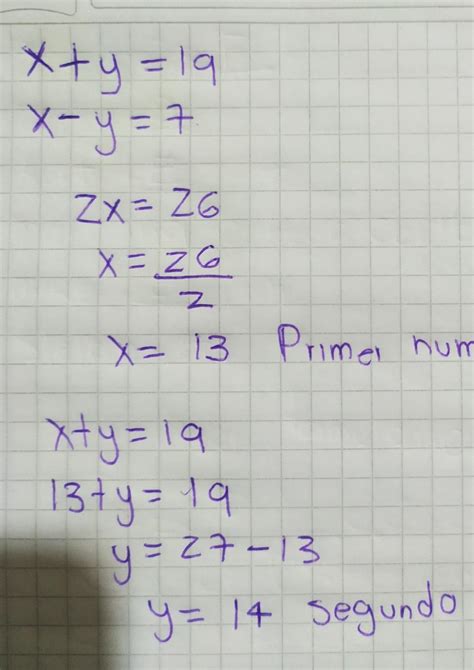 x+y=19
x-y=7
2x=26
x=26/2
x=13 Primer num
x+y=19
13+y=19
y=27-13
y=14 segundo